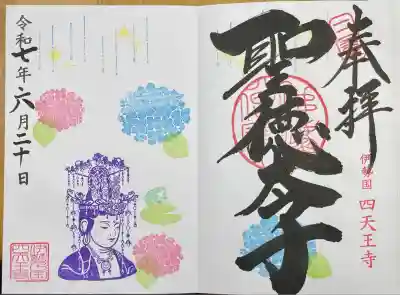 奉拝
聖徳太子
伊勢国 四天王寺
令和七年六月二十日